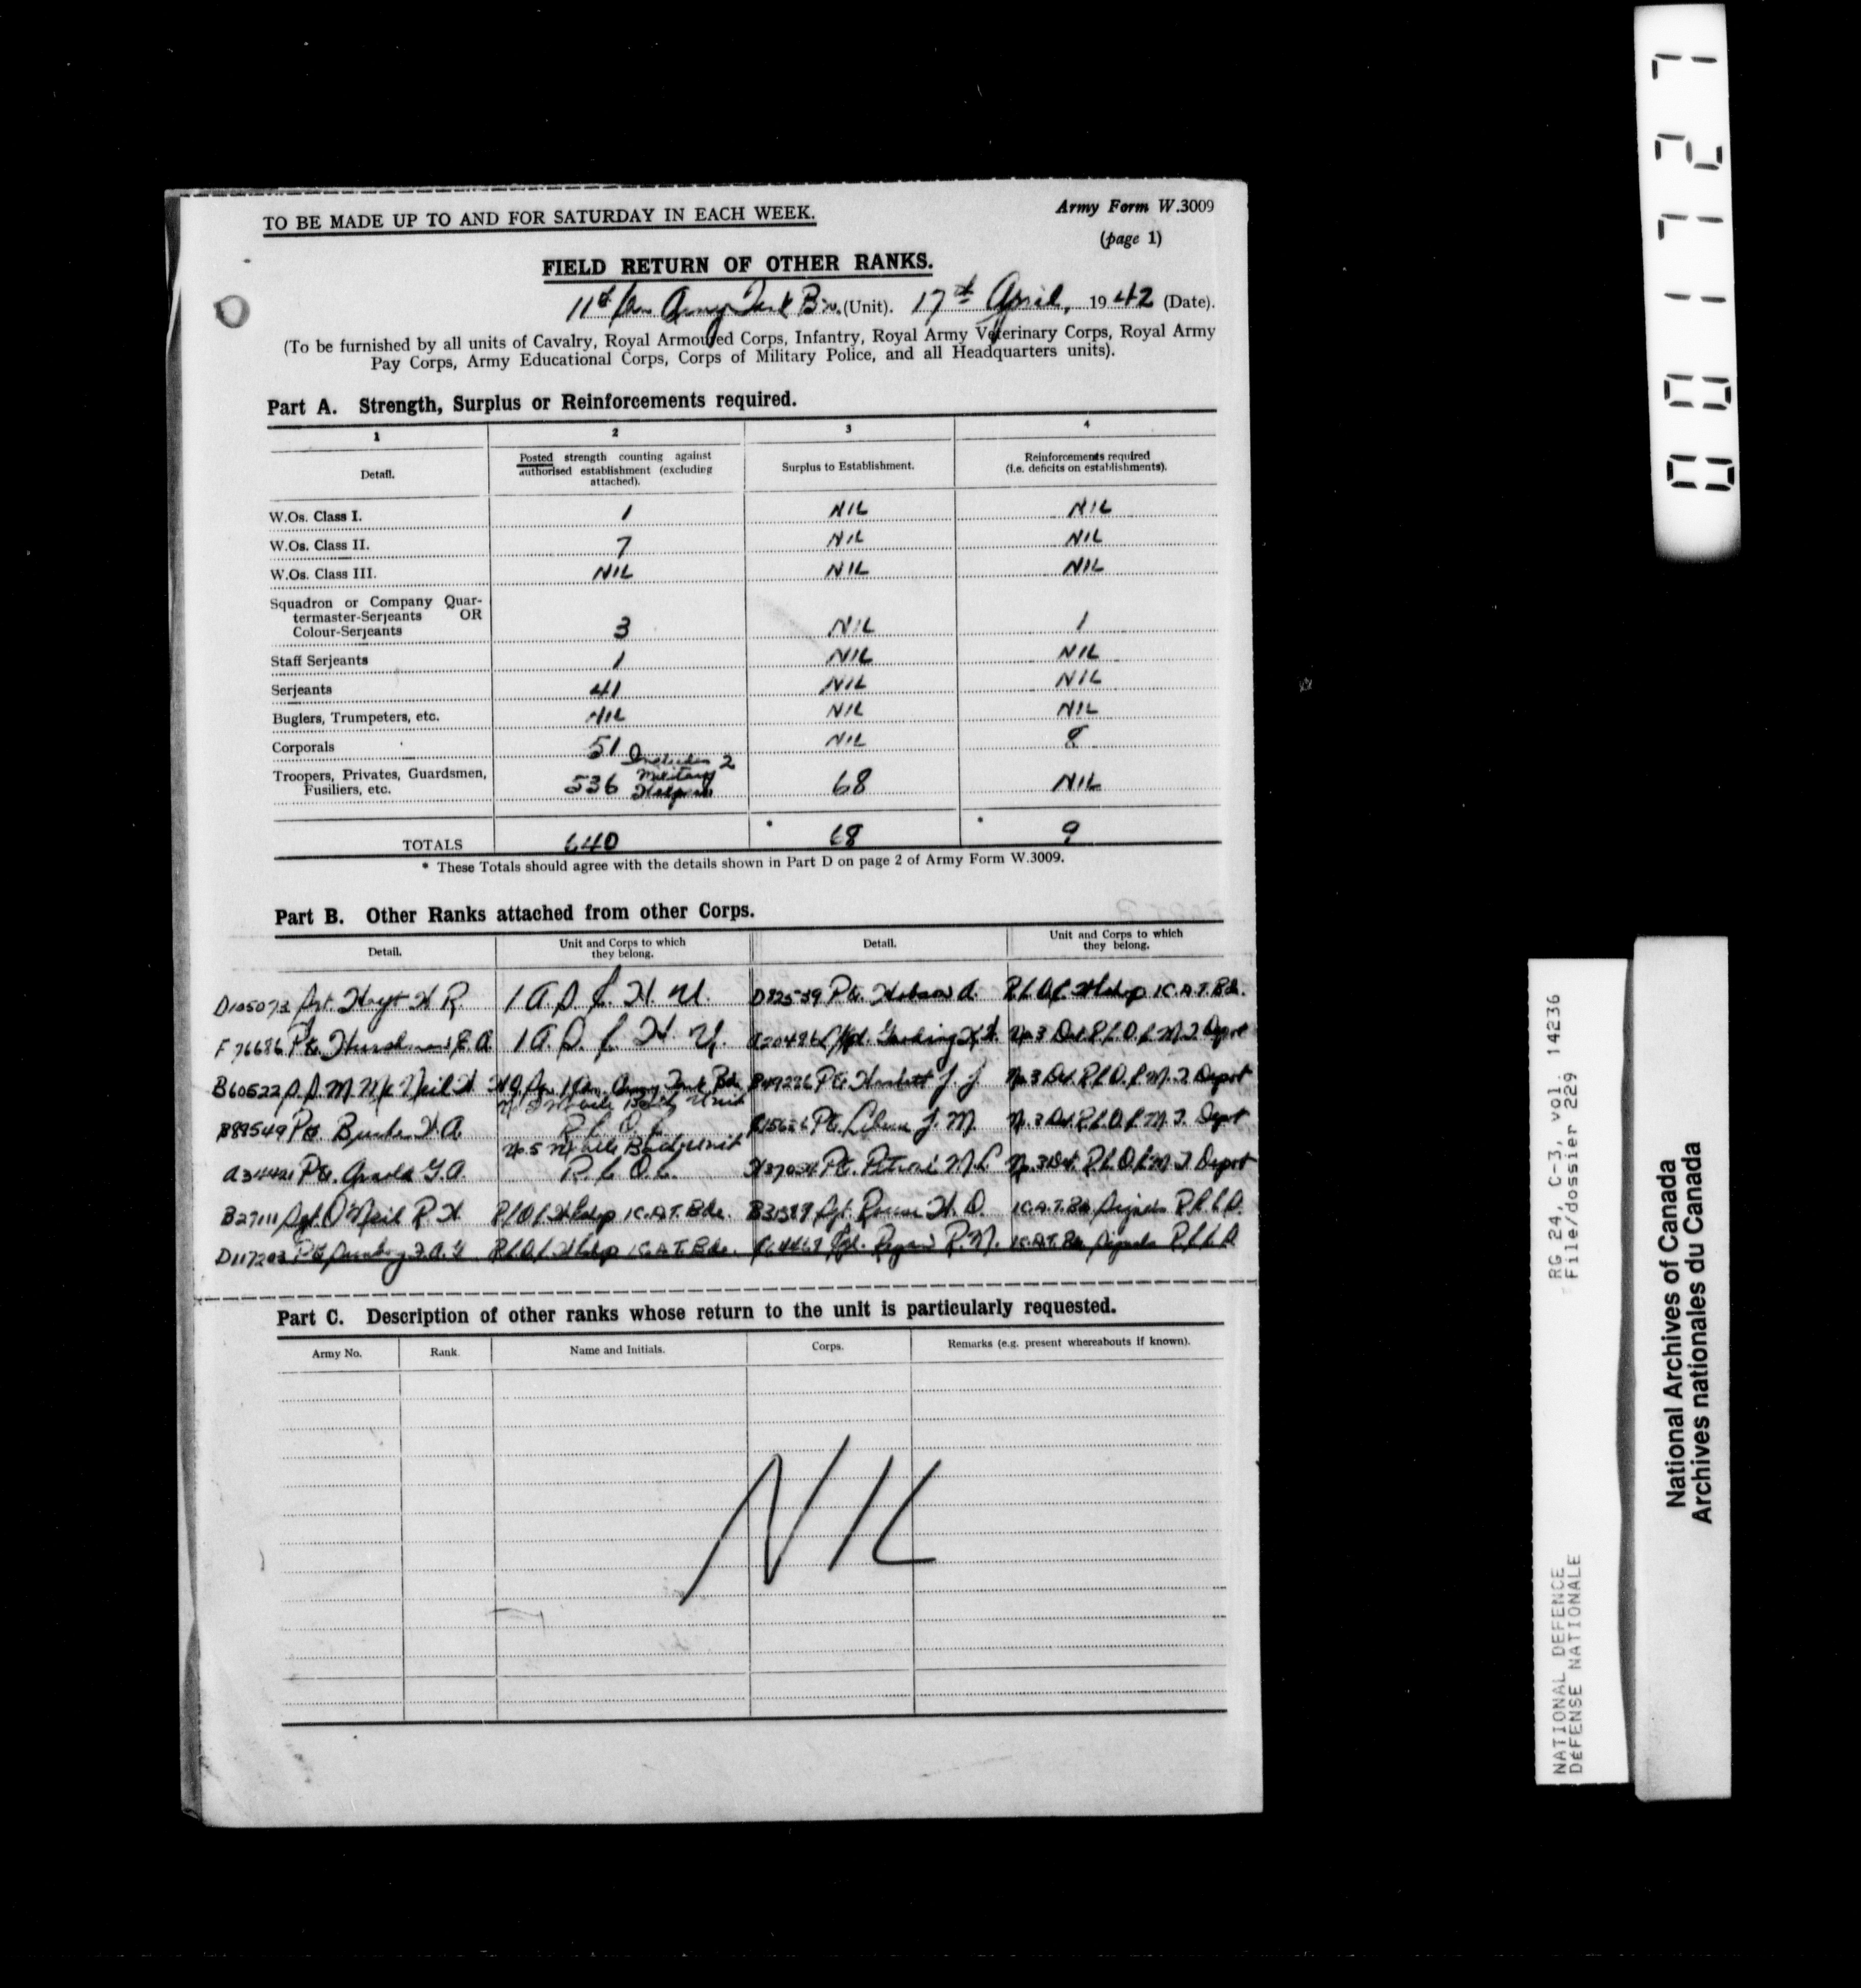 TO BE MADE UP TO AND FOR SATURDAY IN EACH WEEK.
Army Form W.3009
(page 1)
FIELD RETURN OF OTHER RANKS.
11th Army Tank Bn. (Unit). 17th April, 1942 (Date).
(To be furnished by all units of Cavalry, Royal Armoured Corps, Infantry, Royal Army Veterinary Corps, Royal Army
Pay Corps, Army Educational Corps, Corps of Military Police, and all Headquarters units).
Part A. Strength, Surplus or Reinforcements required.
1 2 3 4
Detail. Posted strength counting against authorised establishment (excluding attached). Surplus to Establishment. Reinforcements required (i.e. deficits on establishments).
W.Os. Class I. 1 NIL NIL
W.Os. Class II. 7 NIL NIL
W.Os. Class III. NIL NIL NIL
Squadron or Company Quar-
termaster-Serjeants OR
Colour-Serjeants 3 NIL 1
Staff Serjeants 1 NIL NIL
Serjeants 41 NIL NIL
Buglers, Trumpeters, etc. NIL NIL NIL
Corporals 51 NIL 8
Troopers, Privates, Guardsmen,
Fusiliers, etc. 536 Includes 2 Military 68 NIL
TOTALS 640 * 68 * 9
* These Totals should agree with the details shown in Part D on page 2 of Army Form W.3009.
Part B. Other Ranks attached from other Corps.
Detail. Unit and Corps to which they belong. Detail. Unit and Corps to which they belong.
D105073 Hoyt H.R. 1 A.D.C.H.U. Pte. Hobson A. 1C.A.T.Bde.
F76686 Pte. E.A. 1 A.D.C.H.U. No 3 Det. R.C.O.C. M.T. Depot
B60522 McNeil H. Army Tank Bde. Pte. J.J. No 3 Det. R.C.O.C. M.T. Depot
B89549 Pte. H.A. R.C.O.C. Pte. J.M. No. 3 Det. R.C.O.C. M.T. Depot
Pte. G.A. No. 5 Mobile Unit R.C.O.C. Pte. No. 3 Det. R.C.O.C. M.T. Depot
B27111 Sgt. O'Neil R.H. R.C.O.C. 1C.A.T. Bde. Sgt. H.D. 1C.A.T.Bde Signals
D117203 Pte. R.C.O.C. 1C.A.T. Bde. R.M. 1C.A.T. Bde Signals
Part C. Description of other ranks whose return to the unit is particularly requested.
Army No. Rank. Name and Initials. Corps. Remarks (e.g. present whereabouts if known).
NIL
001727
RG 24, C-3, vol. 14236
File/dossier 229
NATIONAL DEFENCE
DÉFENSE NATIONALE
National Archives of Canada
Archives nationales du Canada